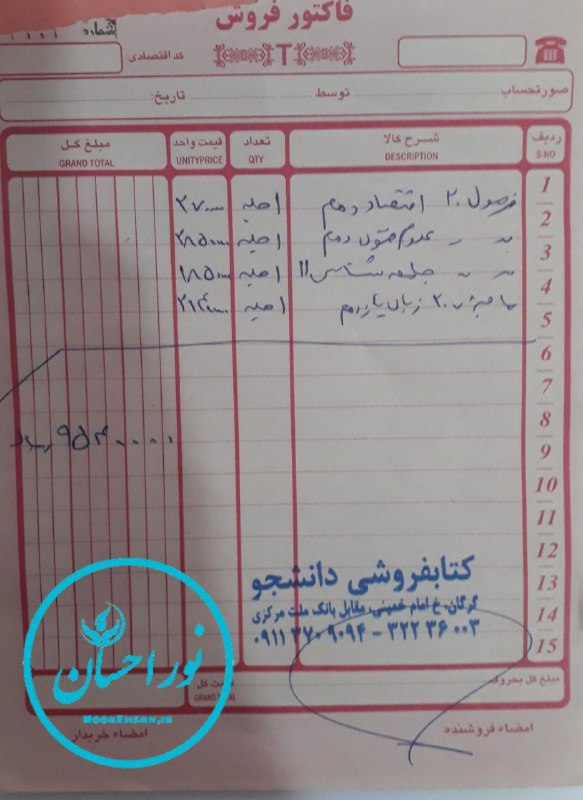 فاکتور فروش
شماره
کد اقتصادی:
صورتحساب توسط تاریخ:
ردیف شرح کالا تعداد قیمت واحد مبلغ کل
S-NO DESCRIPTION QTY UNITYPRICE GRAND TOTAL
1 فرمول ۲۰ اقتصاد دهم ۱ جلد
2 علوم فنون دهم ۱ جلد ۲۸۵۰۰۰۰
3 جامعه شناسی ۱۱ ۱ جلد ۱۸۵۰۰۰۰
4 زبان یازدهم ۱ جلد
5
6
7
8
9
10
11
12
13
14
15
۹۵۴۰۰۰۰ ریال
کتابفروشی دانشجو
گرگان، خ امام خمینی، مقابل بانک ملت مرکزی
۰۹۱۱ ۳۷۰ ۹۰۹۴ - ۳۲۲ ۳۶ ۰۰۳
مبلغ کل بحروف
GRAND TOTAL
امضاء فروشنده امضاء خریدار
نور احسان
NOOREHSAN.IR